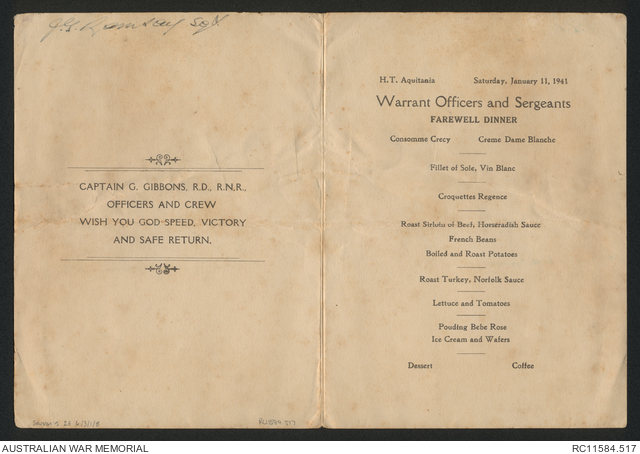 J.G. Ramsay Sgt
CAPTAIN G. GIBBONS, R.D., R.N.R.,
OFFICERS AND CREW
WISH YOU GOD SPEED, VICTORY
AND SAFE RETURN.
H.T. Aquitania Saturday, January 11, 1941
Warrant Officers and Sergeants
FAREWELL DINNER
Consomme Crecy Creme Dame Blanche
Fillet of Sole, Vin Blanc
Croquettes Regence
Roast Sirloin of Beef, Horseradish Sauce
French Beans
Boiled and Roast Potatoes
Roast Turkey, Norfolk Sauce
Lettuce and Tomatoes
Pouding Bebe Rose
Ice Cream and Wafers
Dessert Coffee
AUSTRALIAN WAR MEMORIAL RC11584.517